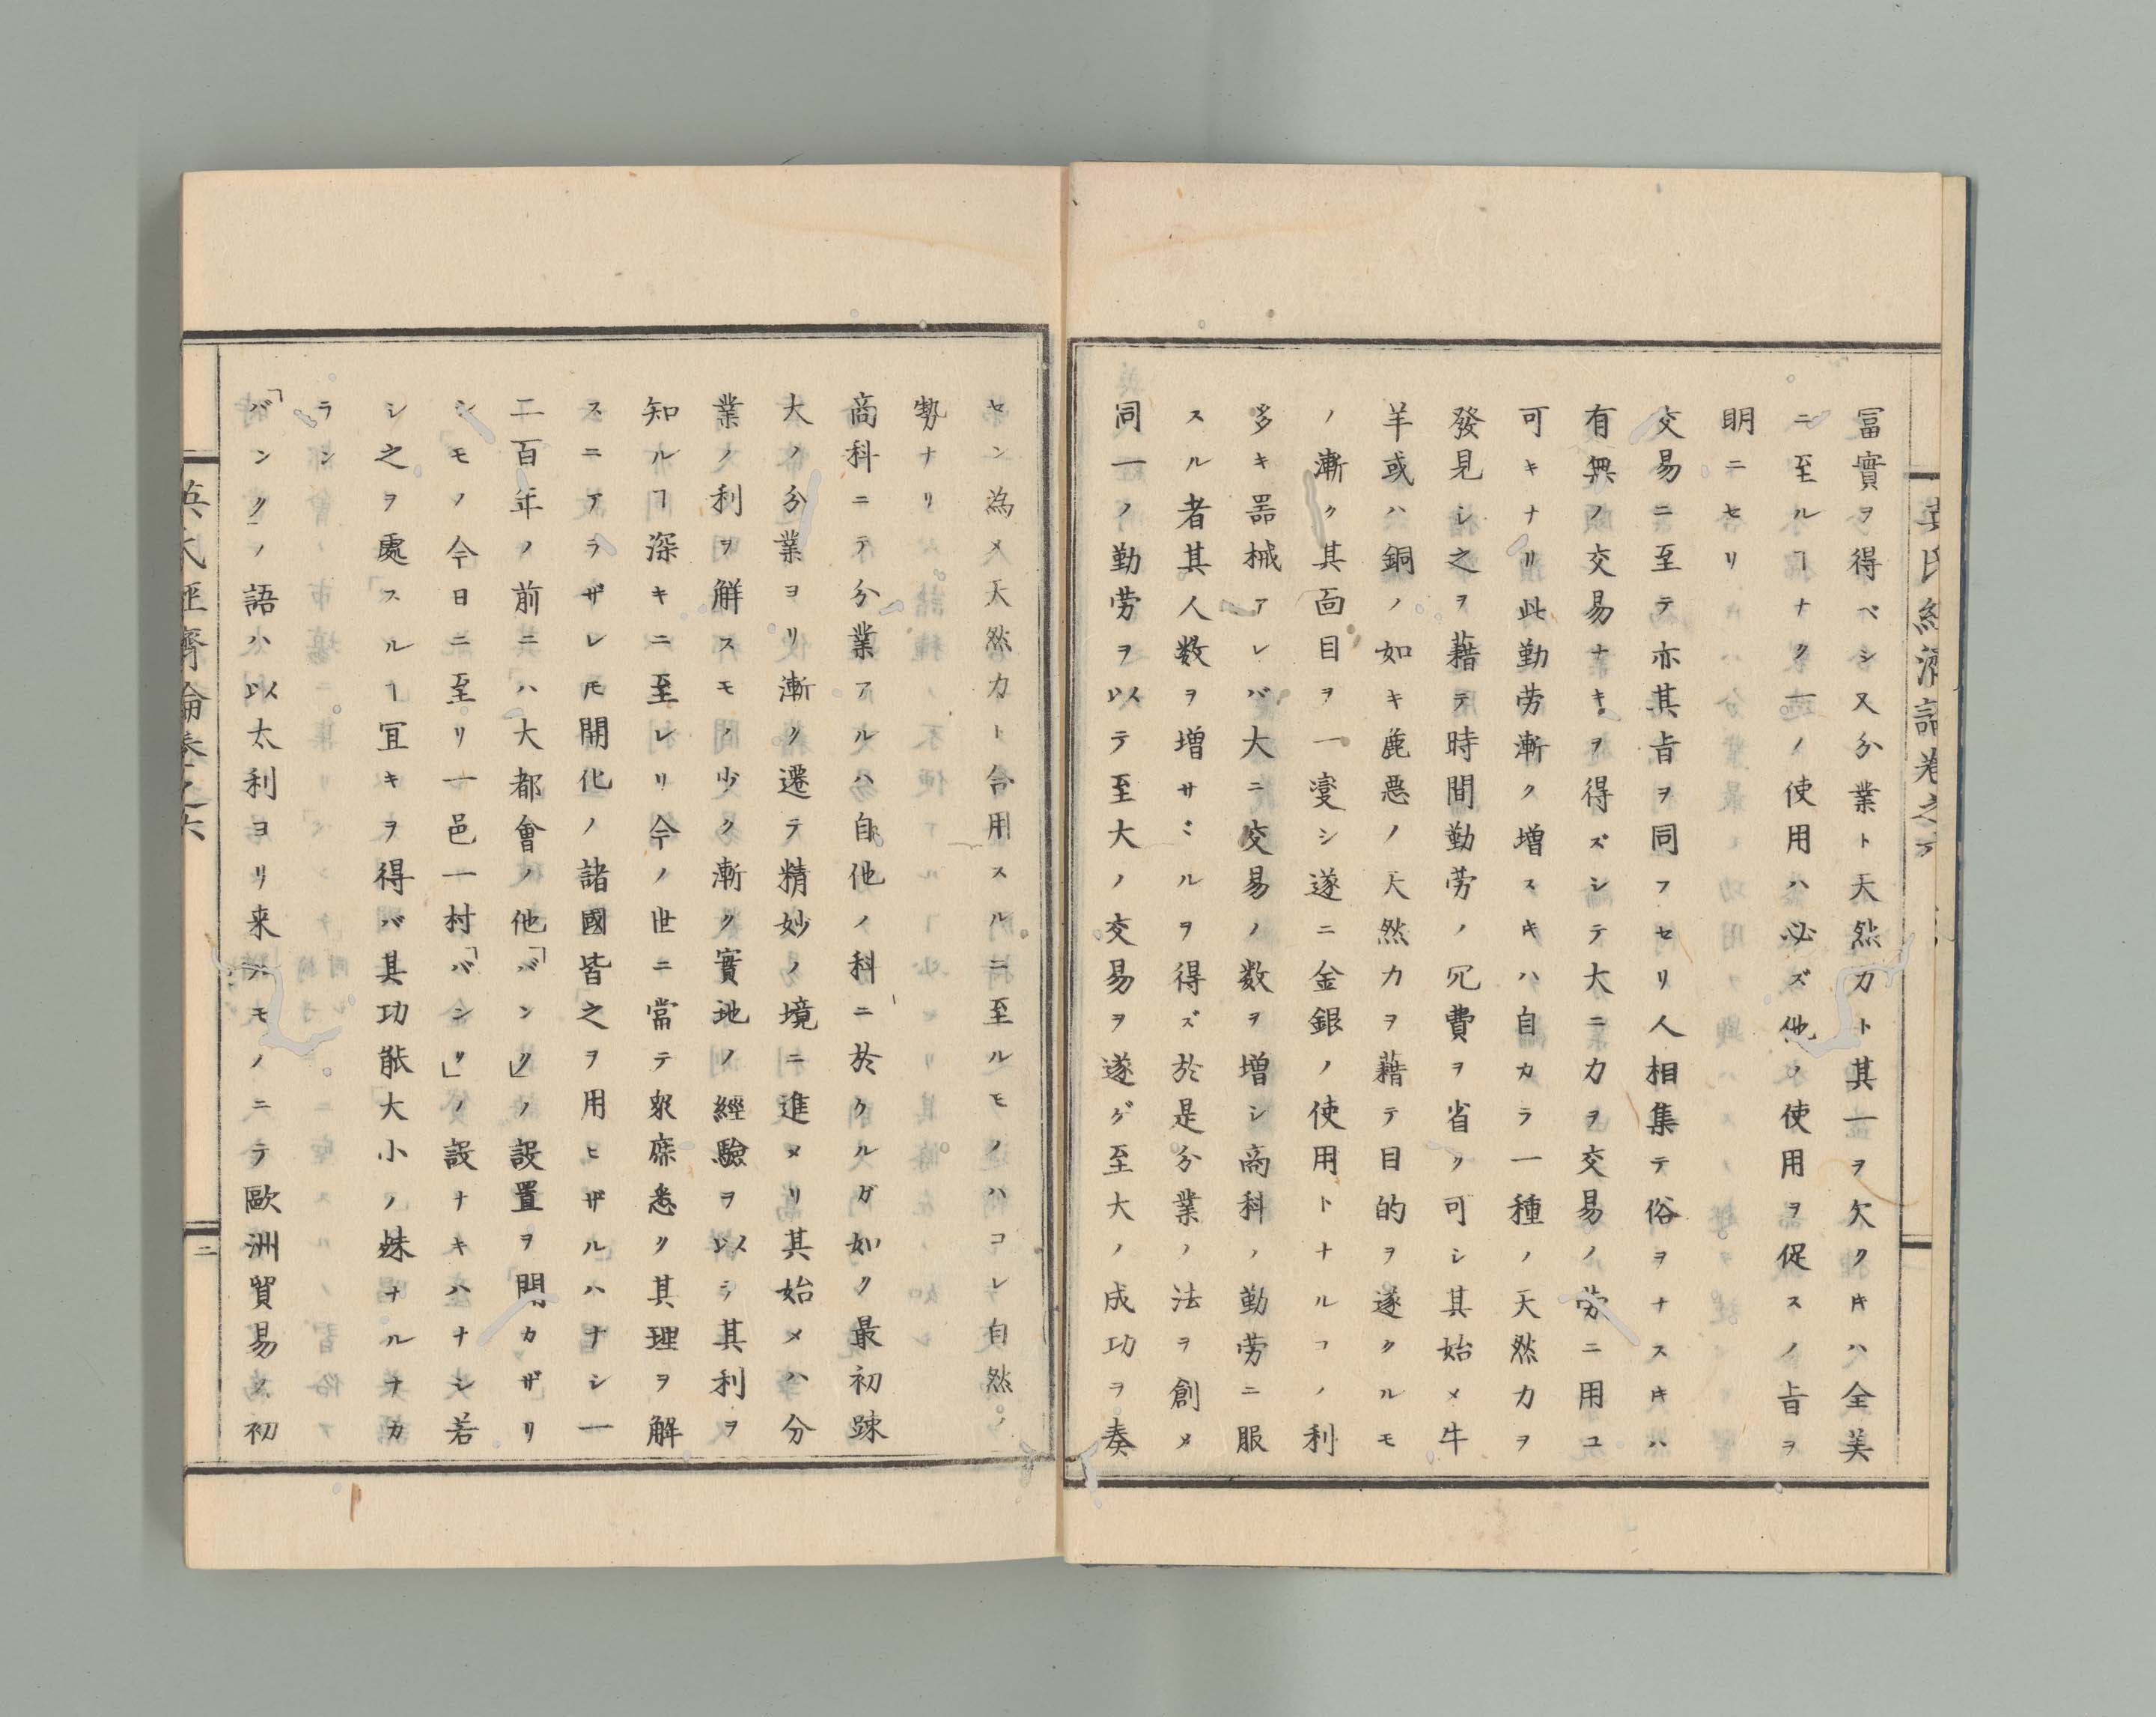 冨實ヲ得ベシ又分業ト天然力ト其一ヲ欠クキハ全美
ニ至ルヿナク一ノ使用ハ必ズ他ノ使用ヲ促スノ旨ヲ
明ニセリ
交易ニ至テ亦其旨ヲ同フセリ人相集テ俗ヲナスキハ
有無ノ交易ナキヲ得ズシテ大ニ力ヲ交易ノ労ニ用ユ
可キナリ此勤労漸ク増スキハ自カラ一種ノ天然力ヲ
發見シ之ヲ藉テ時間勤労ノ冗費ヲ省ク可シ其始メ牛
羊或ハ銅ノ如キ麁悪ノ天然力ヲ藉テ目的ヲ遂クルモ
ノ漸ク其面目ヲ一変シ遂ニ金銀ノ使用トナルコノ利
多キ噐械アレバ大ニ交易ノ数ヲ増シ商科ノ勤労ニ服
スル者其人数ヲ増サヾルヲ得ズ於是分業ノ法ヲ創メ
同一ノ勤労ヲ以テ至大ノ交易ヲ遂ゲ至大ノ成功ヲ奏
セン為メ天然力ト合用スルニ至ルモノハコレ自然ノ
勢ナリ
商科ニテ分業アルハ自他ノ科ニ於クルガ如ク最初踈
大ノ分業ヨリ漸ク遷テ精妙ノ境ニ進メリ其始メハ分
業ノ利ヲ解スモノ少ク漸ク實地ノ經驗ヲ以テ其利ヲ
知ルヿ深キニ至レリ今ノ世ニ當テ衆庶悉ク其理ヲ解
スニアラザレ𪜈開化ノ諸國皆之ヲ用ヒザルハナシ一
二百年ノ前ニハ大都會ノ他「バンク」ノ設置ヲ聞カザリ
シモノ今日ニ至リ一邑一村「バンク」ノ設ナキハナシ若
シ之ヲ處スルヿ冝キヲ得バ其功能大小ノ殊ナルナカ
ラン
「バンク」ノ語ハ以太利ヨリ来ルモノニテ歐洲貿易ノ初
英氏經濟論卷之六
二